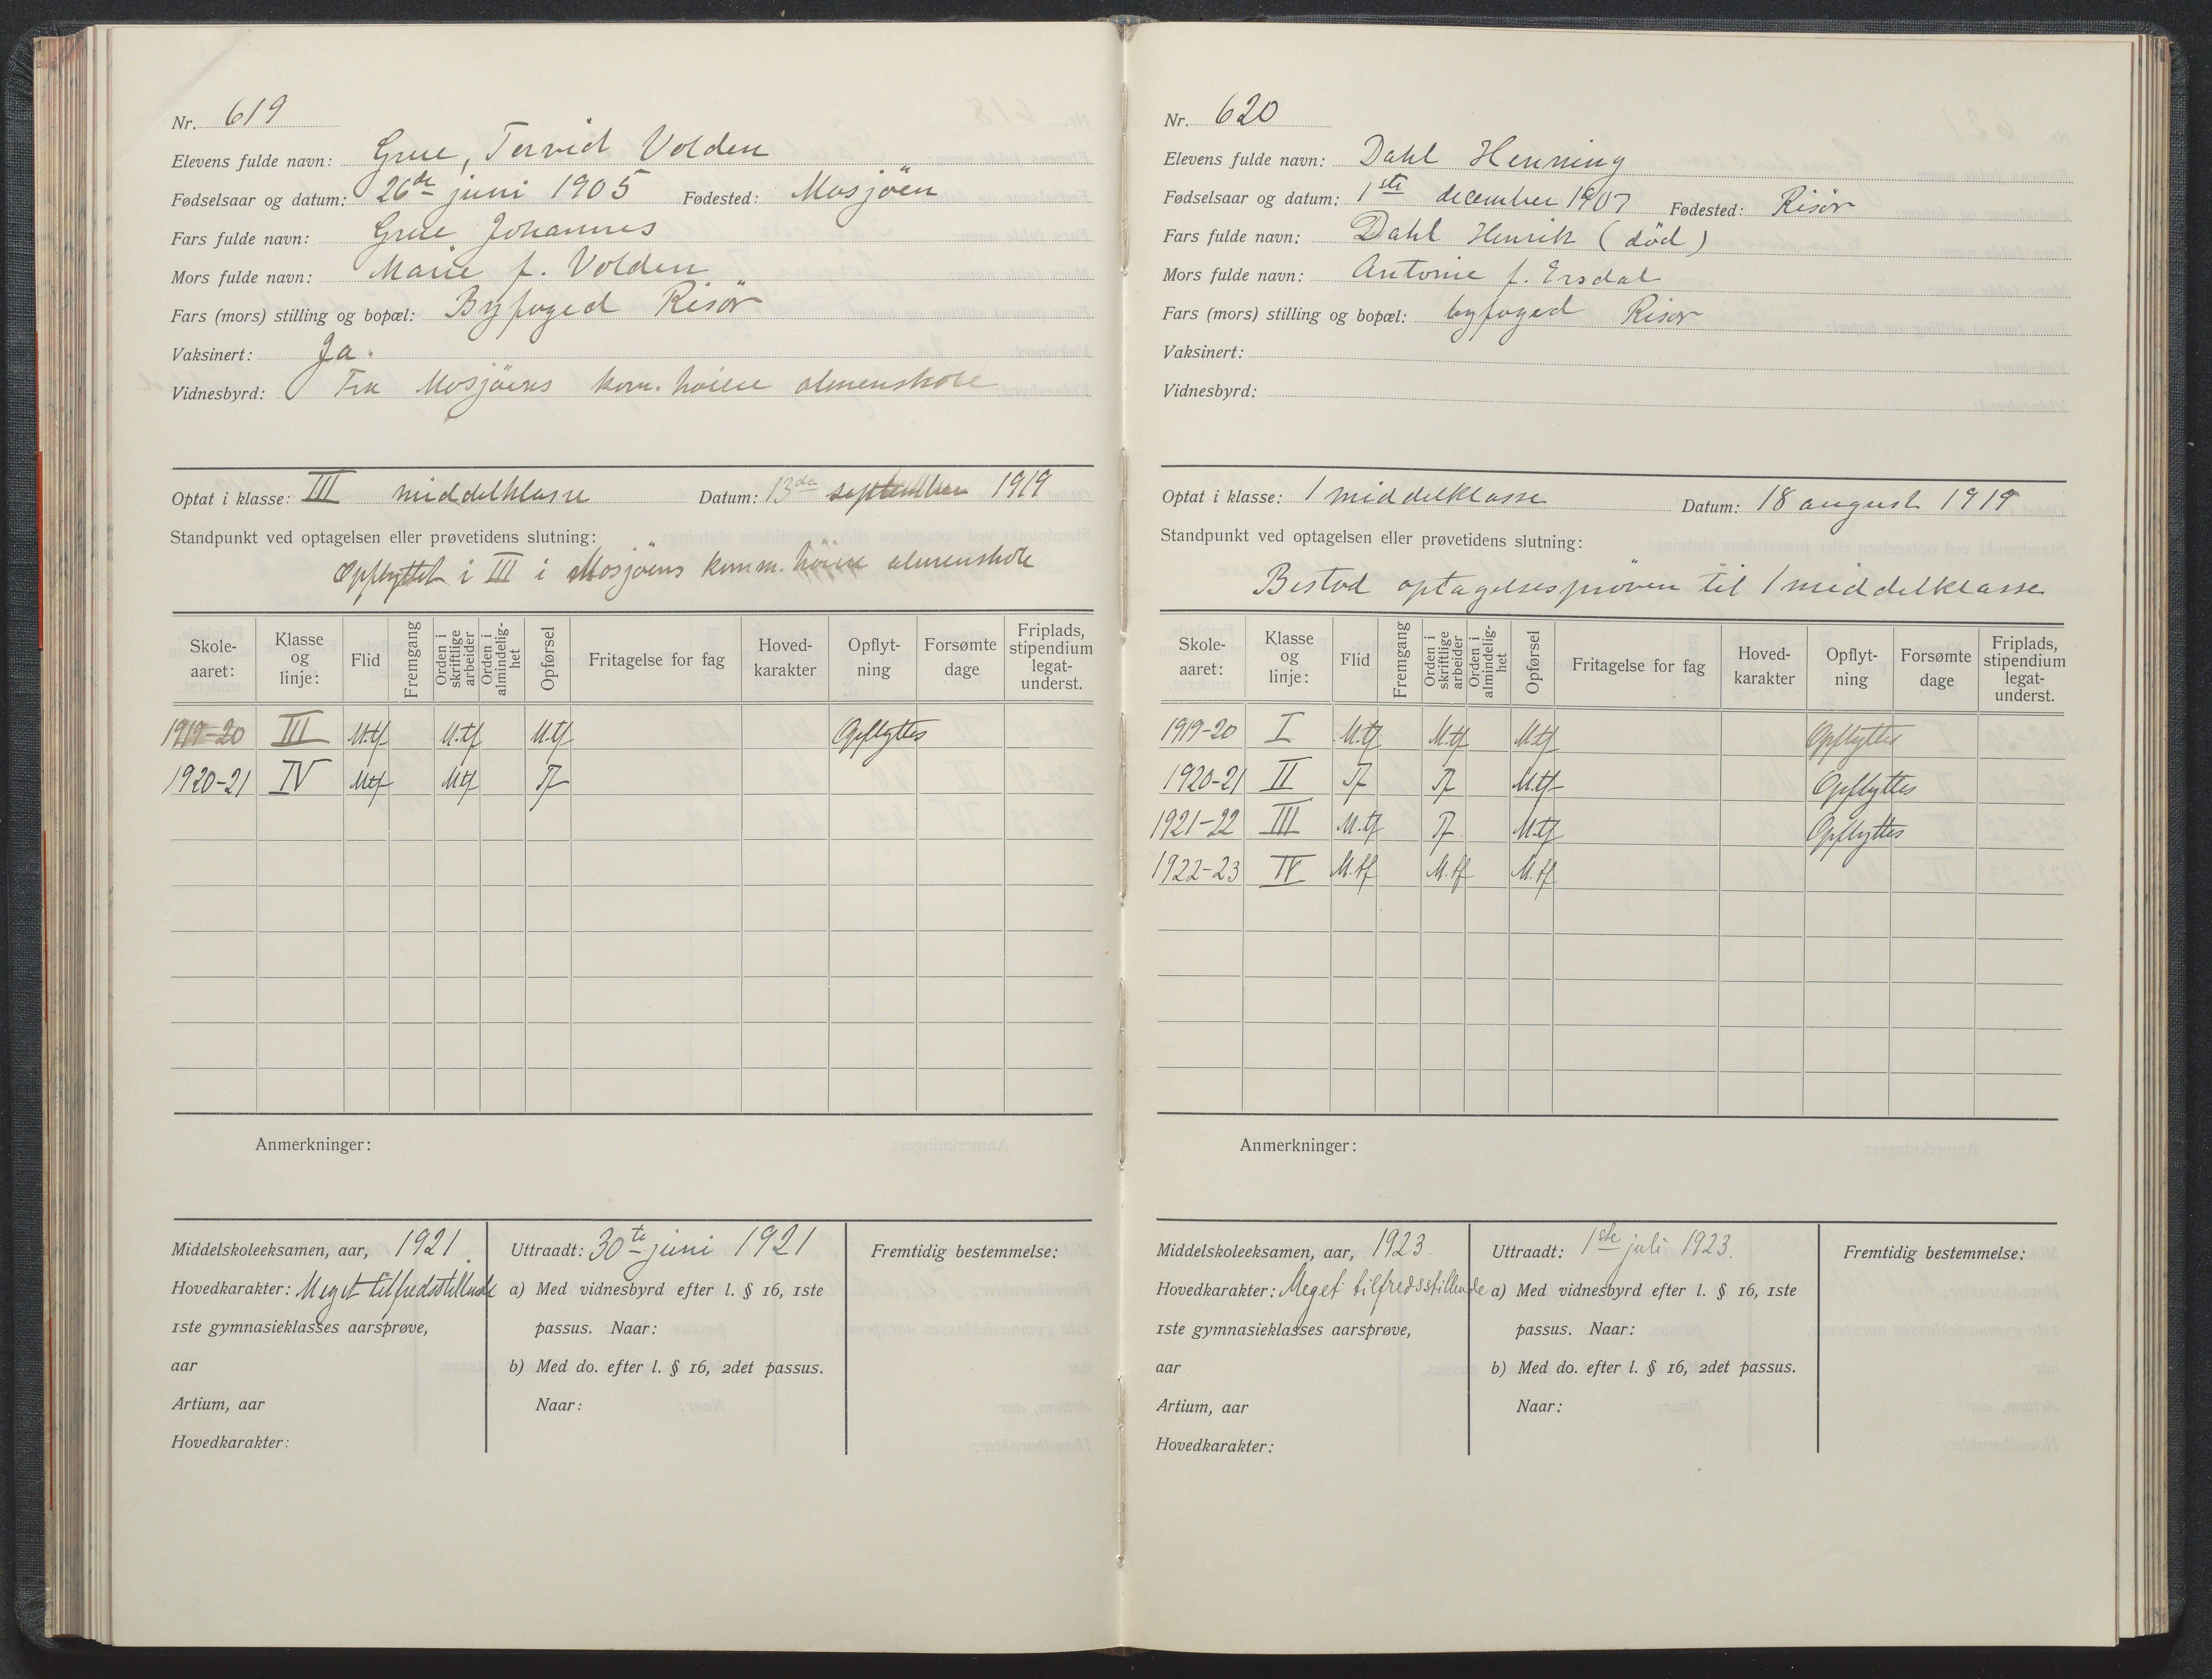 Nr. 619
Elevens fulde navn: Grue, Torvid Volden
Fødselsaar og datum: 26de juni 1905 Fødested: Mosjöen
Fars fulde navn: Grue Johannes
Mors fulde navn: Marie f. Volden
Fars (mors) stilling og bopæl: Byfoged Risör
Vaksinert: Ja.
Vidnesbyrd: Fra Mosjöens kom. höiere almenskole
Optat i klasse: III middelklasse Datum: 13de september 1919
Standpunkt ved optagelsen eller prøvetidens slutning:
Opflyttet i III i Mosjöens komm. höiere almenskole
Skole-aaret: Klasse og linje: Flid Fremgang Orden i skriftlige arbeider Orden i almindelig-het Opførsel Fritagelse for fag Hoved-karakter Opflyt-ning Forsømte dage Friplads, stipendium legat-underst.
1919-20 III M.tf M.tf M.tf Opflyttes
1920-21 IV Mtf Mtf Tf
Anmerkninger:
Middelskoleeksamen, aar, 1921 Uttraadt: 30te juni 1921 Fremtidig bestemmelse:
Hovedkarakter: Meget tilfredsstillende a) Med vidnesbyrd efter l. § 16, 1ste
1ste gymnasieklasses aarsprøve, passus. Naar:
aar b) Med do. efter l. § 16, 2det passus.
Artium, aar Naar:
Hovedkarakter:
Nr. 620
Elevens fulde navn: Dahl Henning
Fødselsaar og datum: 1ste december 1907 Fødested: Risör
Fars fulde navn: Dahl Henrik (död)
Mors fulde navn: Antonie f. Ersdal
Fars (mors) stilling og bopæl: byfoged Risör
Vaksinert:
Vidnesbyrd:
Optat i klasse: 1 middelklasse Datum: 18 august 1919
Standpunkt ved optagelsen eller prøvetidens slutning:
Bestod optagelsespröven til 1 middelklasse
Skole-aaret: Klasse og linje: Flid Fremgang Orden i skriftlige arbeider Orden i almindelig-het Opførsel Fritagelse for fag Hoved-karakter Opflyt-ning Forsømte dage Friplads, stipendium legat-underst.
1919-20 I M.tf M.tf M.tf Opflyttes
1920-21 II Tf Tf M.tf Opflyttes
1921-22 III M.tf Tf M.tf Opflyttes
1922-23 IV M.tf M.tf M.tf
Anmerkninger:
Middelskoleeksamen, aar, 1923 Uttraadt: 1ste juli 1923. Fremtidig bestemmelse:
Hovedkarakter: Meget tilfredsstillende a) Med vidnesbyrd efter l. § 16, 1ste
1ste gymnasieklasses aarsprøve, passus. Naar:
aar b) Med do. efter l. § 16, 2det passus.
Artium, aar Naar:
Hovedkarakter: